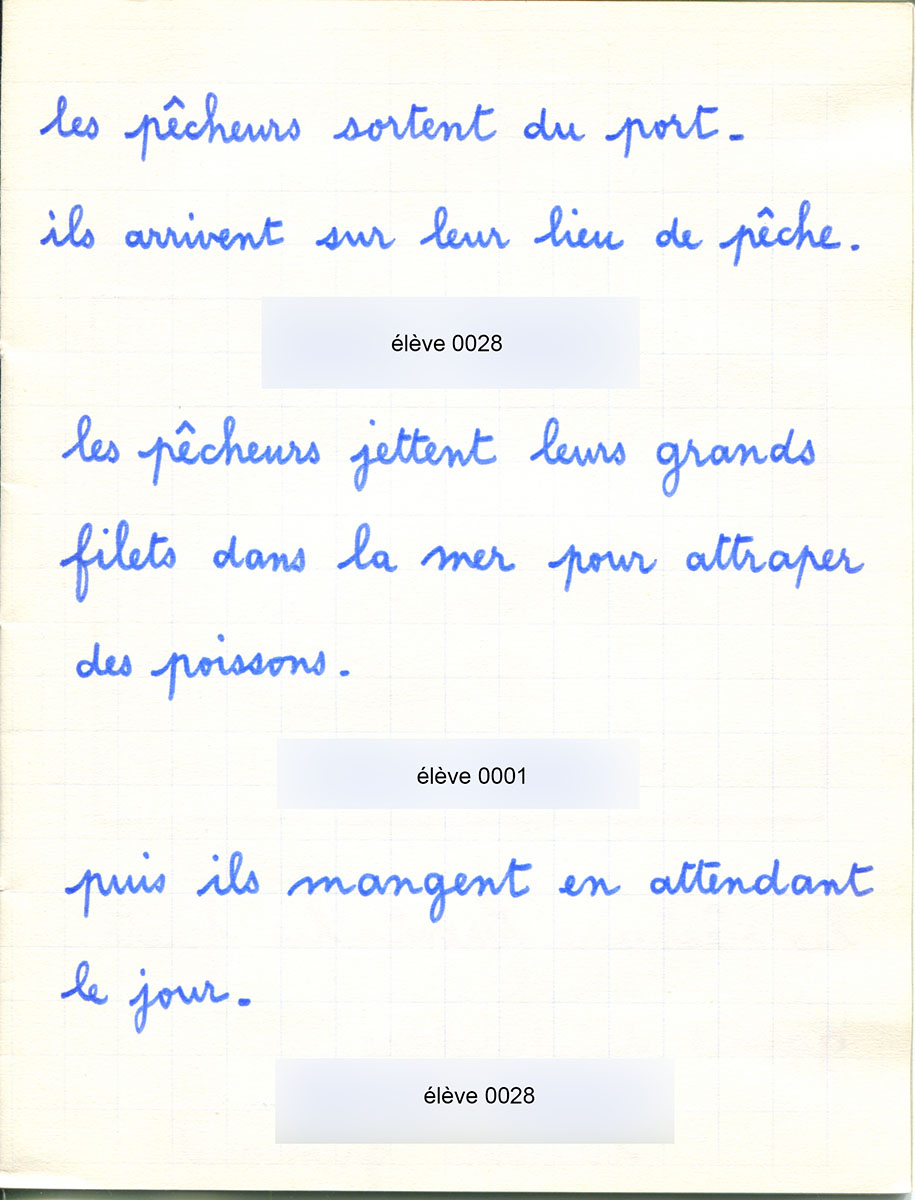 les pêcheurs sortent du port.
ils arrivent sur leur lieu de pêche.
élève 0028
les pêcheurs jettent leurs grands
filets dans la mer pour attraper
des poissons.
élève 0001
puis ils mangent en attendant
le jour.
élève 0028